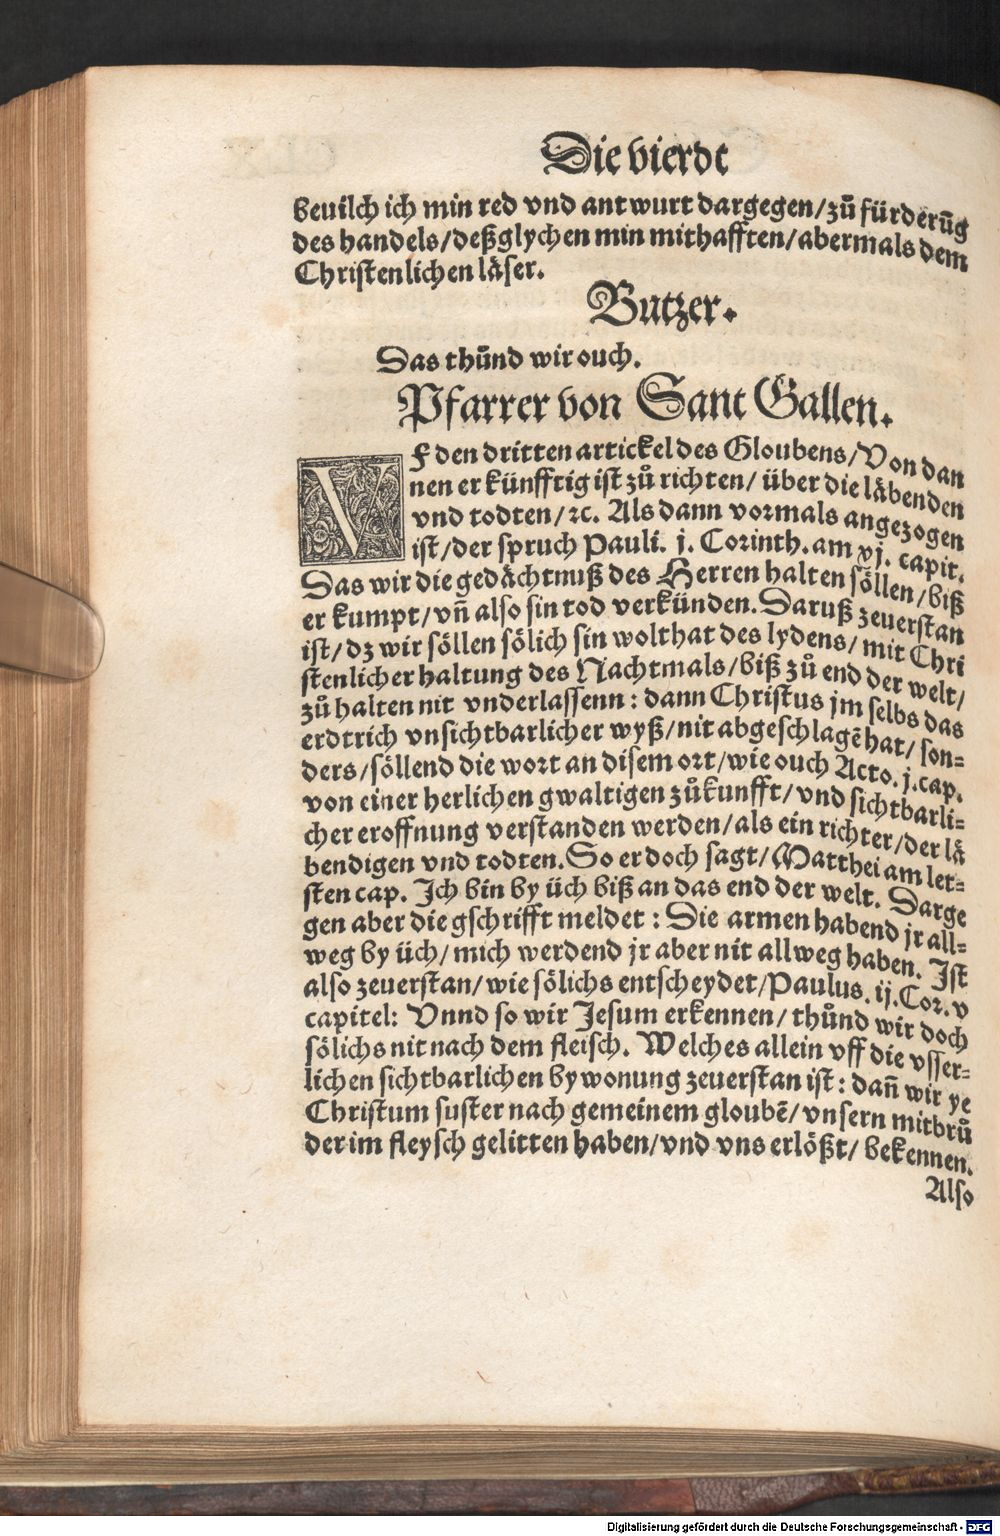 Die vierdt
bevilch ich min red vnd antwurt dargegen/zů fürderūg
des handels/deßglychen min mithafften/abermals dem
Christenlichen läser.
Butzer.
Das thůnd wir ouch.
Pfarrer von Sant Gallen.
VF den dritten artickel des Gloubens/Von dan
nen er künfftig ist zů richten/ über die läbenden
vnd todten/ꝛc. Als dann vormals angezogen
ist/der spruch Pauli. j. Corinth. am xj. capit.
Das wir die gedächtnuß des Herren halten söllen/biß
er kumpt/vn̄ also sin tod verkünden. Daruß zeuerstan
ist/dz wir söllen sölich sin wolthat des lydens/ mit Chri
stenlicher haltung des Nachtmals/biß zů end der welt/
zů halten nit vnderlassenn: dann Christus jm selbs das
erdtrich vnsichtbarlicher wyß/nit abgeschlagē hat/ son⸗
ders/söllend die wort an disem ort/wie ouch Acto. j. cap.
von einer herlichen gwaltigen zůkunfft/vnd sichtbarli⸗
cher eroffnung verstanden werden/als ein richter/der lä
bendigen vnd todten. So er doch sagt/Matthei am let⸗
sten cap. Ich bin by üch biß an das end der welt. Darge
gen aber die gschrifft meldet: Die armen habend jr all⸗
weg by üch/ mich werdend jr aber nit allweg haben. Ist
also zeuerstan/wie sölichs entscheydet/Paulus. ij. Cor. v
capitel: Vnnd so wir Jesum erkennen/ thůnd wir doch
sölichs nit nach dem fleisch. Welches allein vff die vsser⸗
lichen sichtbarlichen bywonung zeuerstan ist: dan̄ wir ye
Christum suster nach gemeinem gloubē/vnsern mitbrů
der im fleysch gelitten haben/vnd vns erlößt/ bekennen.
Also
Digitalisierung gefördert durch die Deutsche Forschungsgemeinschaft - DFG